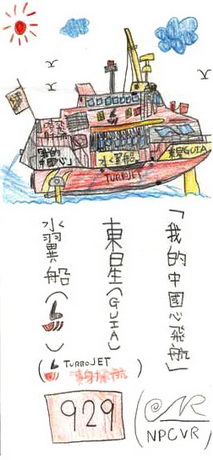 水翼船
東星GUIA
TURBOJET
「我的中國心飛船」
東星(GUIA)
水翼船(
)
(TURBOJET
噴射飛航)
929
(NR
NPCVR)